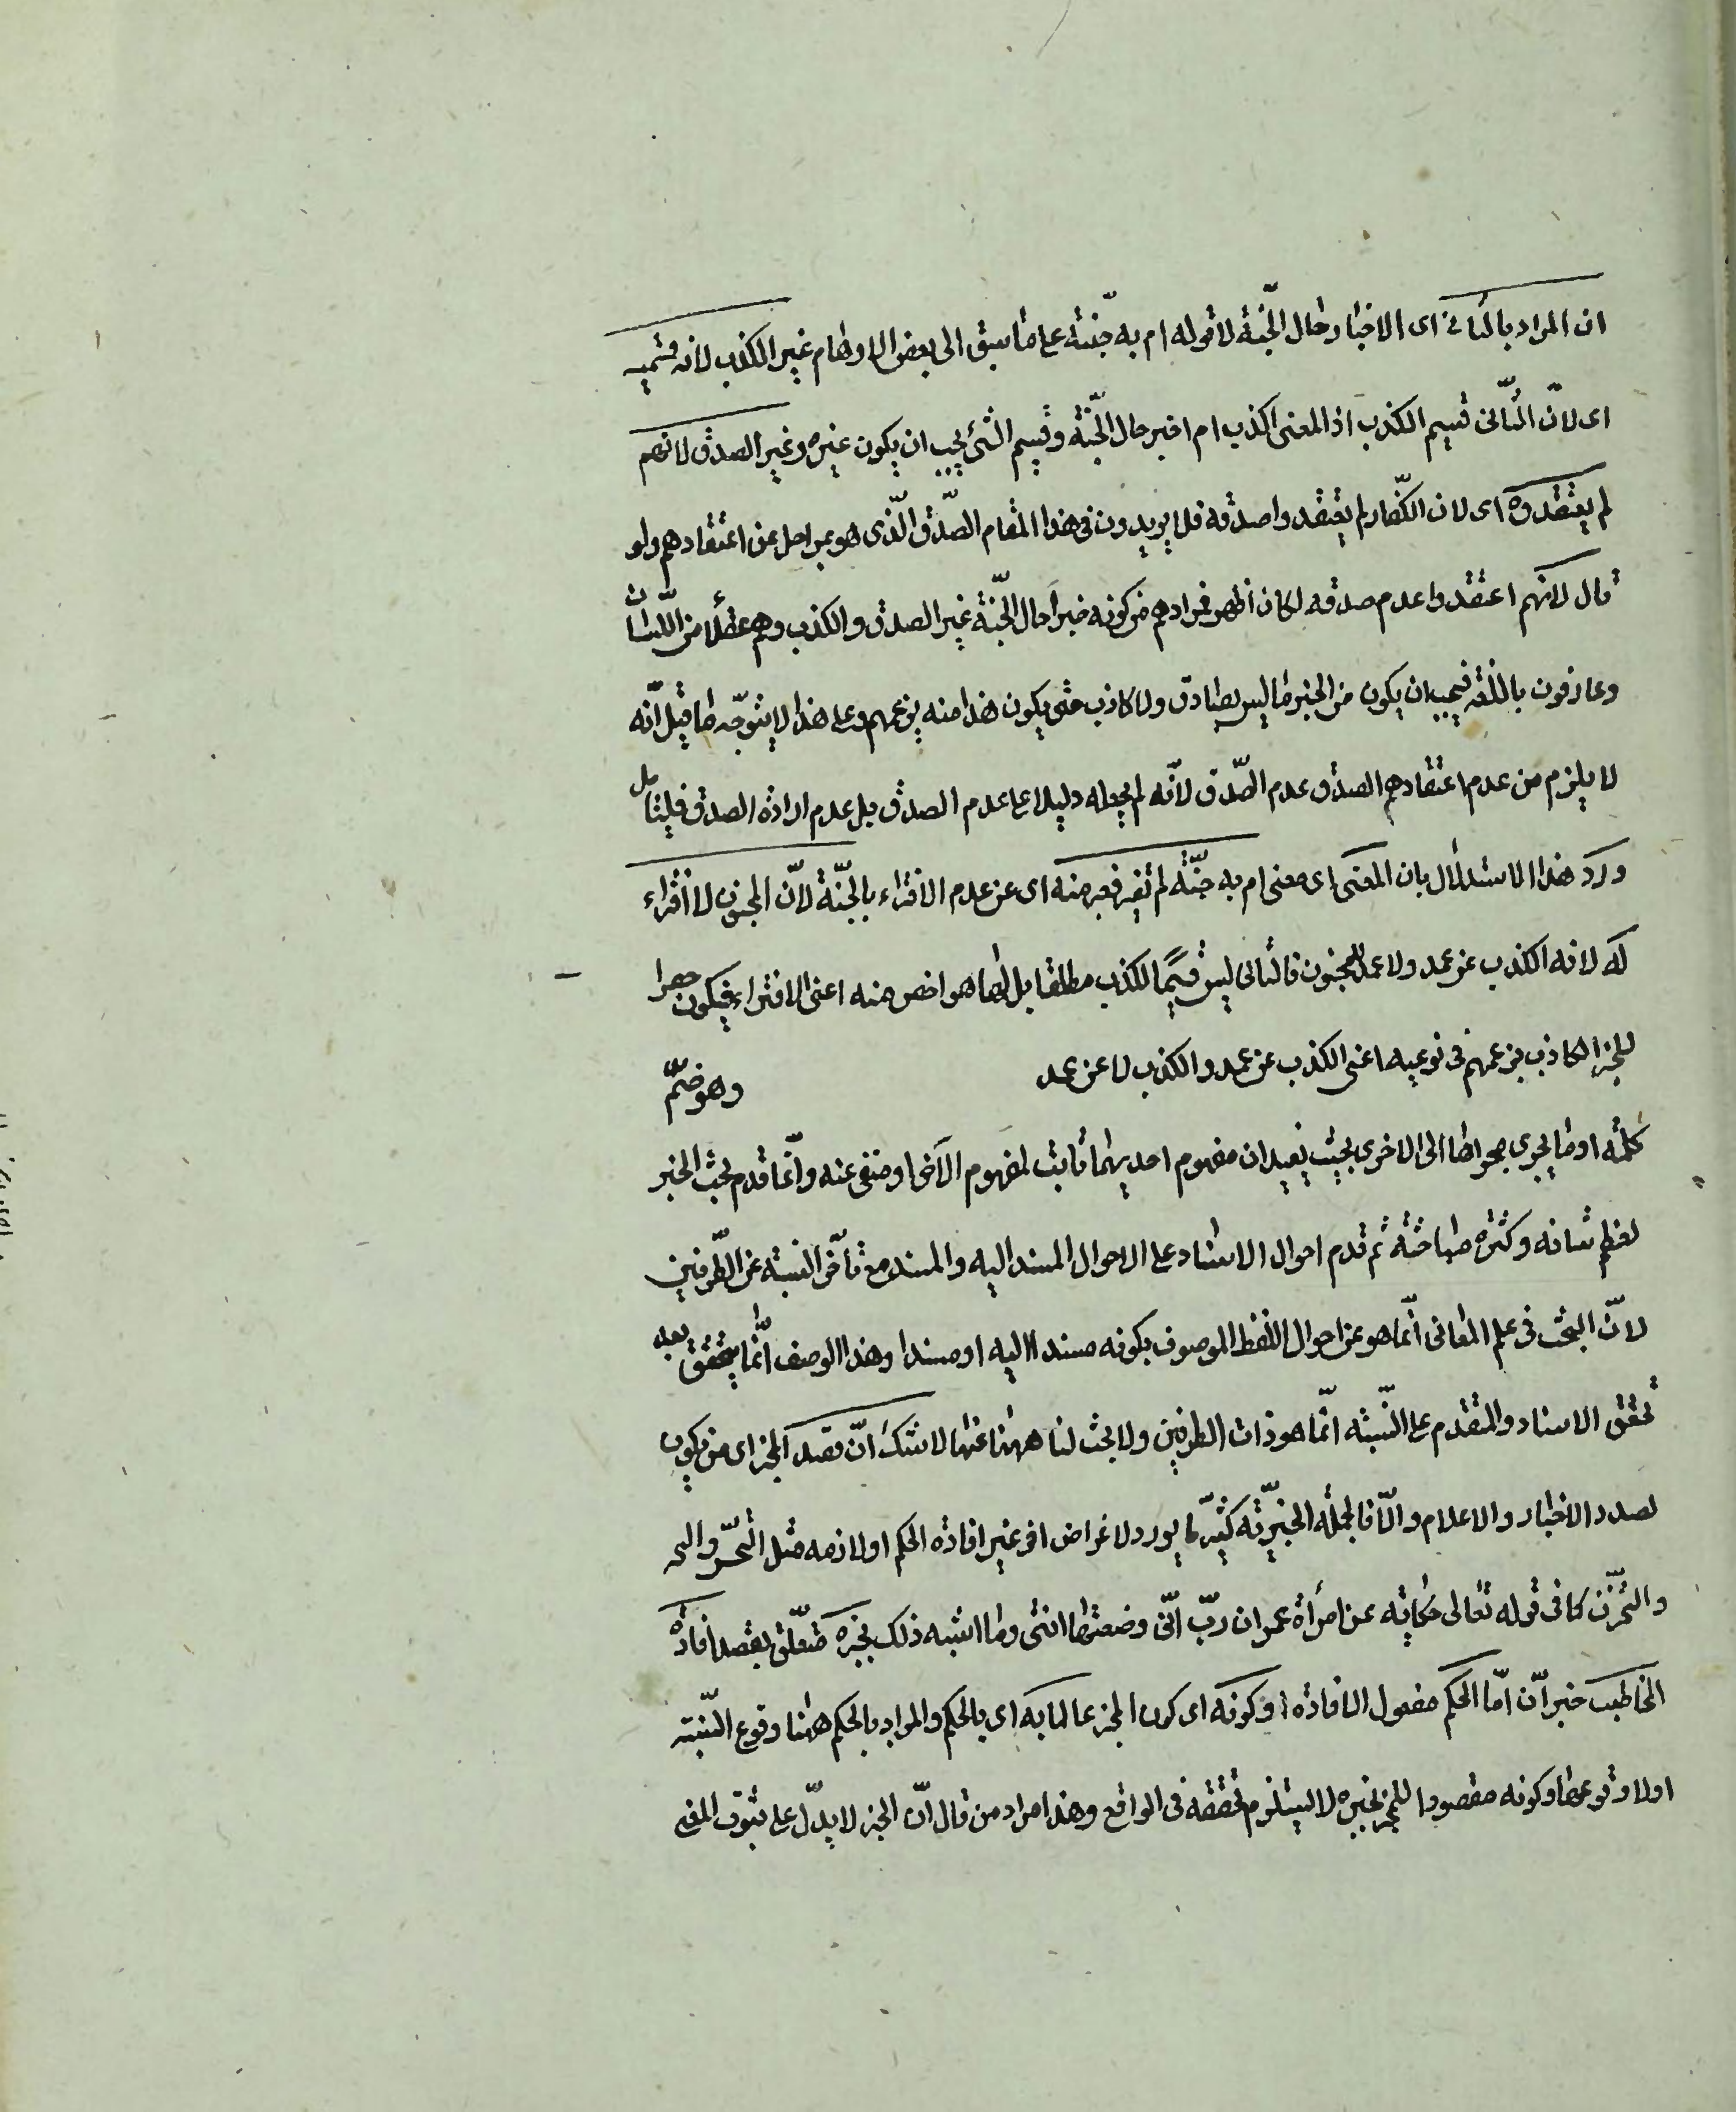 ان المراد بالثانى اى الاخبار حال الجنّة لا قوله ام به جنّة على ما سبق الى بعض الاوهام غير الكذب لانه قسيمه
اى لانّ الثّانى قسيم الكذب اذ المعنى اكذب ام اخبر حال الجنّة وقسيم الشئ يجب ان يكون غيره وغير الصدق لانهم
لم يعتقدوه اى لان الكفّار لم يعتقدوا صدقه فلا يريدون فى هذا المقام الصّدق الّذى هو بمراحل عن اعتقادهم ولو
قال لانهم اعتقدوا عدم صدقه لكان اظهر فمرادهم من كونه خبرا حال الجنّة غير الصدق والكذب وهم عقلاء من اللّسان
وعارفون باللغة فيجب ان يكون من الخبر ما ليس بصادق ولا كاذب حتى يكون هذا منه بزعمهم وعلى هذا لا يتوجّه ما قيل انّه
لا يلزم من عدم اعتقادهم الصدق عدم الصّدق لانّه لم يجعله دليلا على عدم الصدق بل عدم ارادة الصدق فليتامل
وردّ هذا الاستدلال بان المعنى اى معنى ام به جنّة لم يفتر فعبر عنه اى عن عدم الافتراء بالجنّة لانّ المجنون لا افتراء
له لانه الكذب عن عمد ولا عمد للمجنون فالثانى ليس قسيمًا للكذب مطلقا بل لما هو اخص منه اعنى الافتراء فيكون حصرا
للخبر الكاذب بزعمهم فى نوعيه اعنى الكذب عن عمد والكذب لا عن عمد وهو ضمّ
كلمة او ما يجرى مجراها الى الاخرى بحيث يفيد ان مفهوم احديهما ثابت لمفهوم الاخرى او منفى عنه وانّما قدم بحث الخبر
لعظم شانه وكثرة مباحثه ثم قدم احوال الاسناد على الاحوال المسند اليه والمسند مع تأخّر النسبة عن الطّرفين
لانّ البحث فى علم المعانى انّما هو عن احوال اللفظ الموصوف بكونه مسندا اليه او مسندا وهذا الوصف انّما يتحقق بعد
تحقق الاسناد والمتقدم على النّسبة انّما هو ذات الطرفين ولا بحث لنا ههنا عنها لا شكّ انّ قصد المخبر اى من يكون
بصدد الاخبار والاعلام والّا فالجملة الخبريّة كثيرّ ما يورد لاغراض اخر غير افادة الحكم او لازمه مثل التّحسّر والتحـ
والتحزّن كما فى قوله تعالى حكاية عن امرأة عمران ربّ انّى وضعتها انثى وما اشبه ذلك بخبره متعلّق بقصد افادة
المخاطب خبر انّ امّا الحكم مفعول الافادة او كونه اى كون المخبر عالما به اى بالحكم والمراد بالحكم ههنا وقوع النّسبة
اولا وقوعها وكونه مقصودا للمخبر بخبره لا يستلزم تحققه فى الواقع وهذا مراد من قال انّ الخبر لا يدلّ على ثبوت المعنى